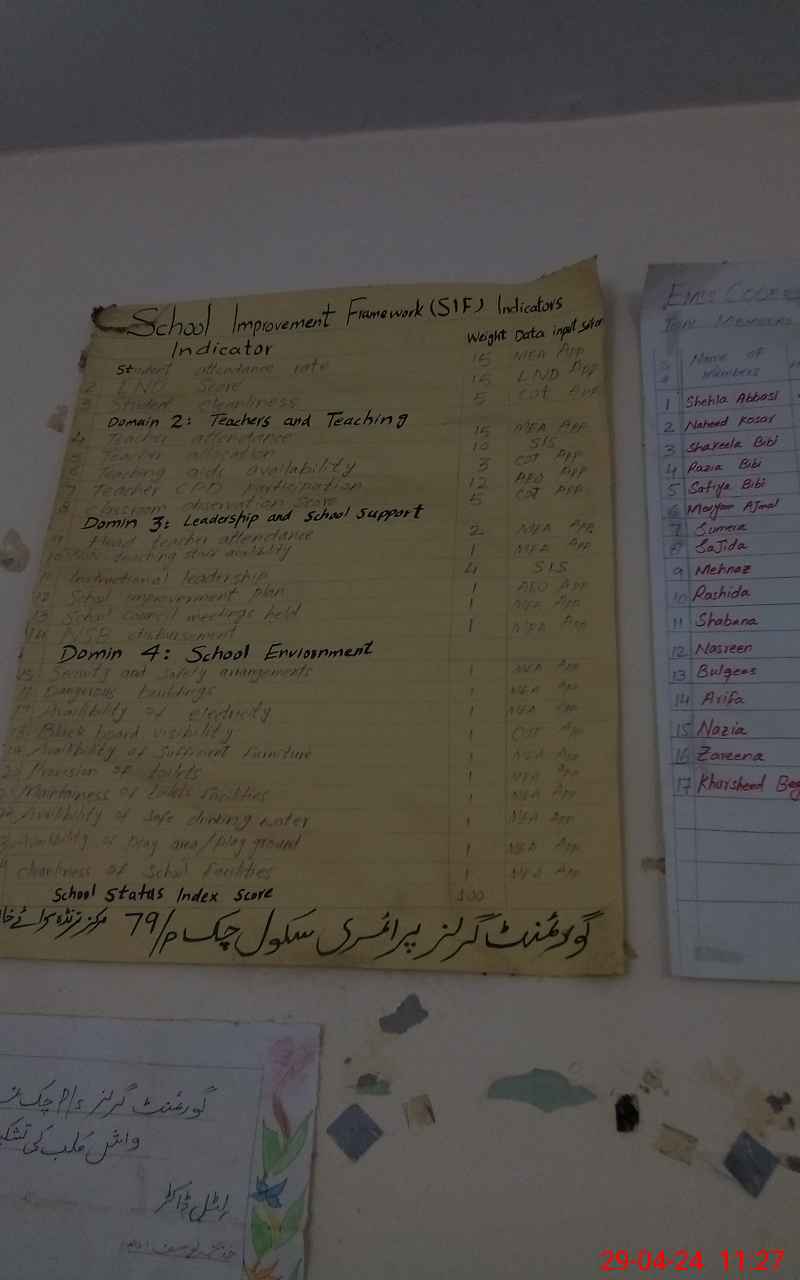 School Improvement Framework (SIF) Indicators
Indicator Weight Data input
Student attendance rate 15 MEA App
2 LND Score 15 LND App
3 Student cleanliness 5 COT App
Domain 2: Teachers and Teaching
4 Teacher attendance 15 MEA App
5 Teacher allocation 10 SIS
6 Teaching aids availability 3 COT App
7 Teacher CPD participation 12 AEO App
8 classroom observation Score 5 COT App
Domin 3: Leadership and School Support
9 Head teacher attendance 2 MEA App
10 Non teaching staff 1 MEA App
11 Instructional leadership 4 SIS
12 School improvement plan 1 AEO App
13 School Council meetings held 1 MEA App
14 NSB disbursement 1 MEA App
Domin 4: School Enviornment
Security and Safety arrangements 1 MEA App
Dangerous buildings 1 MEA App
17 Availibility of electricity 1 MEA App
18 Black board visibility 1 COT App
19 Availibility of Sufficent furniture 1 MEA App
20 Provision of toilets 1 MEA App
of toilets facilities 1 MEA App
Availibility of Safe drinking water 1 MEA App
Availibility of play area/play ground 1 MEA App
cleanliness of School facilities 1 MEA App
School Status Index Score 100
گورئمنٹ گرلز پرائمری سکول چک 79/P مرکز
Name of
Members
1 Shehla Abbasi
2 Naheed Kosar
3 Shareela Bibi
4 Razia Bibi
5 Safiya Bibi
6 Maryam Ajmal
7 Sumera
8 Sajida
9 Mehnaz
10 Rashida
11 Shabana
12 Nasreen
13 Bulgees
14 Arifa
15 Nazia
16 Zareena
17 Khursheed
گورئمنٹ گرلز
کلب کی
لٹل ڈاکٹر
29-04-24 11:27